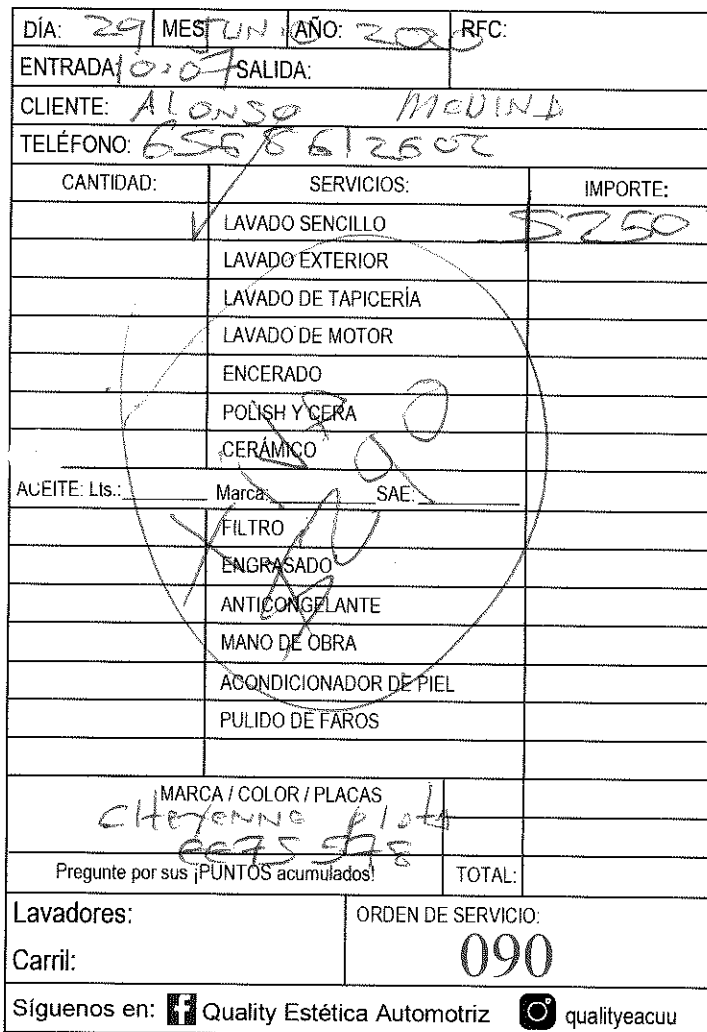 DÍA: 29 MES JUNIO AÑO: 2020 RFC:
ENTRADA 10:07 SALIDA:
CLIENTE: ALONSO
TELÉFONO:
CANTIDAD: SERVICIOS: IMPORTE:
LAVADO SENCILLO $250
LAVADO EXTERIOR
LAVADO DE TAPICERÍA
LAVADO DE MOTOR
ENCERADO
POLISH Y CERA
CERÁMICO
ACEITE: Lts.: Marca: SAE:
FILTRO
ENGRASADO
ANTICONGELANTE
MANO DE OBRA
ACONDICIONADOR DE PIEL
PULIDO DE FAROS
MARCA / COLOR / PLACAS
CHEYENNE Plata
Pregunte por sus ¡PUNTOS acumulados! TOTAL:
Lavadores: ORDEN DE SERVICIO:
Carril: 090
Síguenos en: Quality Estética Automotriz qualityeacuu